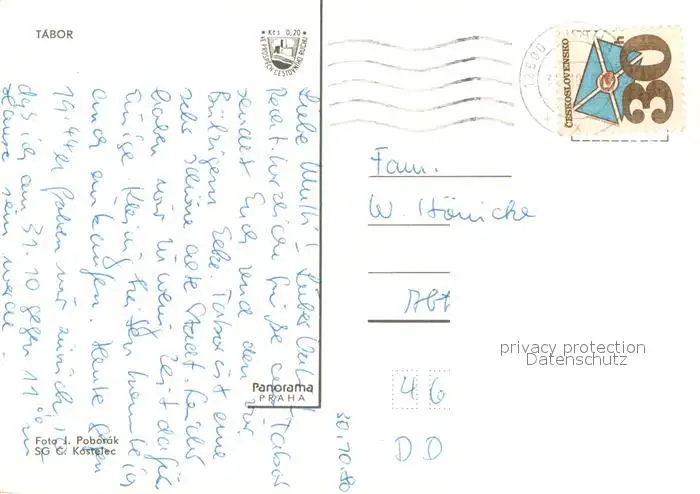 TÁBOR
Kčs 0,20
VE PROSPĚCH CESTOVNÍHO RUCHU
Liebe Mutti! Lieber Vati!
Recht herzliche Grüße aus Tabor
sendet Euch und den
Eche. Tabor ist eine
sehr schöne alte Stadt. Leider
haben wir zu wenig Zeit dafür
Einige Kleinigkeiten konnte ich
auch einkaufen. Heute gegen
19.44 fahren wir zurück, so
daß ich am 31.10 gegen 11 00 zu
Hause sein werde.
30.10.80
Panorama
PRAHA
Foto J. Poborák
SG C. Kostelec
ČESKOSLOVENSKO
30 h
Fam.
W. Hönicke
privacy protection
Datenschutz
46
DD